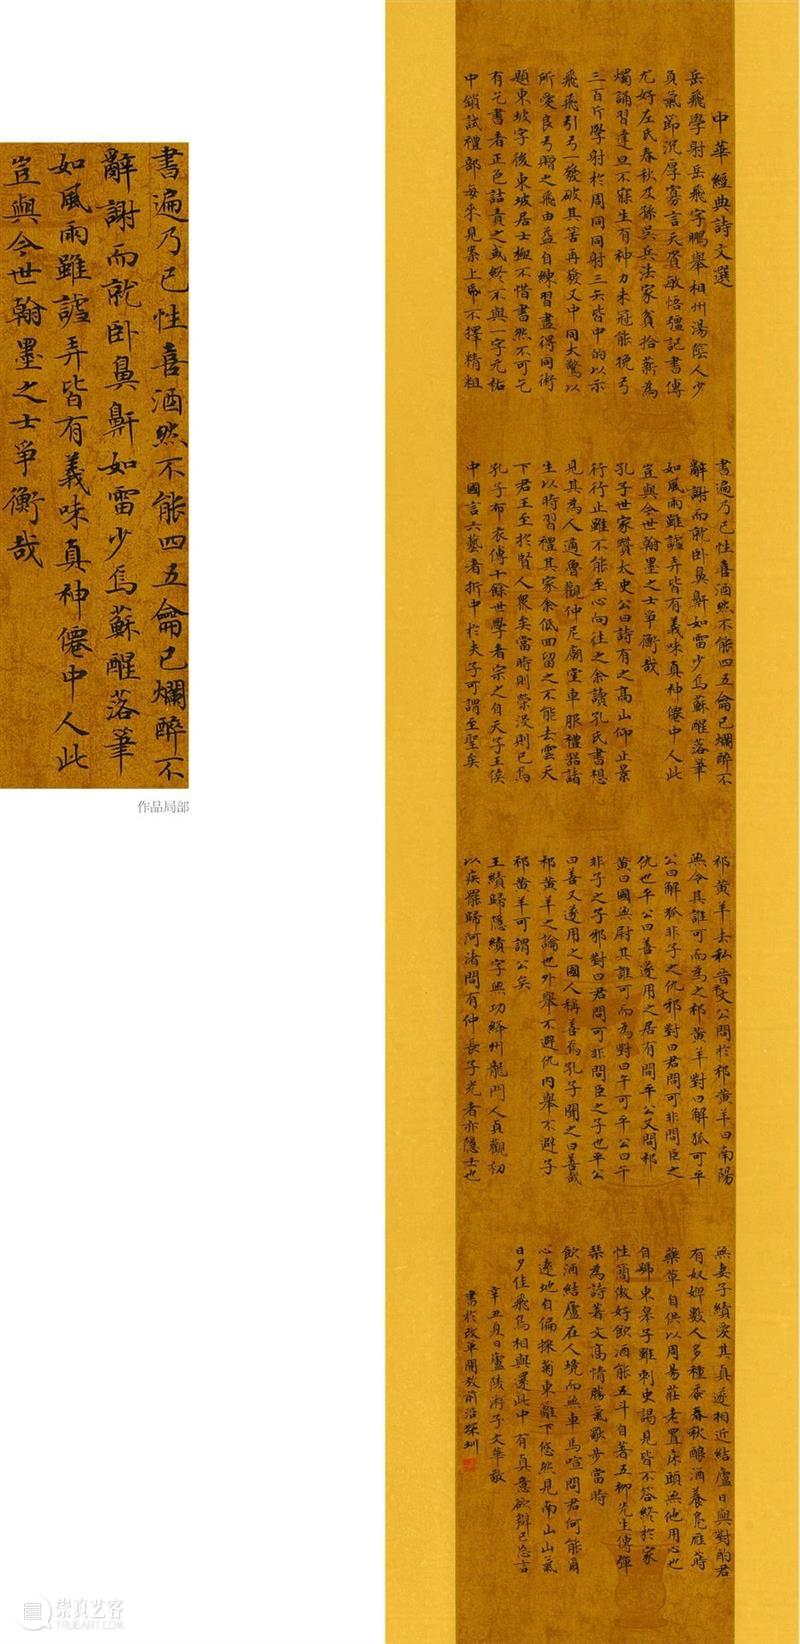 書遍乃已性喜酒然不能四五龠已爛醉不
辭謝而就卧鼻鼾如雷少焉蘇醒落筆
如風雨雖謔弄皆有義味真神僊中人此
豈與今世翰墨之士爭衡哉
作品局部
中華經典詩文選
岳飛學射岳飛字鵬舉相州湯陰人少
負氣節沉厚寡言天資敏悟彊記書傳
尤好左氏春秋及孫吳兵法家貧拾薪為
燭誦習達旦不寐生有神力未冠能挽弓
三百斤學射於周同同射三矢皆中的以示
飛飛引弓一發破其筈再發又中同大驚以
所愛良弓贈之飛由益自練習盡得同術
題東坡字後東坡居士極不惜書然不可乞
有乞書者正色詰責之或終不與一字元祐
中鎖試禮部每來見案上紙不擇精粗
書遍乃已性喜酒然不能四五龠已爛醉不
辭謝而就卧鼻鼾如雷少焉蘇醒落筆
如風雨雖謔弄皆有義味真神僊中人此
豈與今世翰墨之士爭衡哉
孔子世家贊太史公曰詩有之高山仰止景
行行止雖不能至心向往之余讀孔氏書想
見其為人適魯觀仲尼廟堂車服禮器諸
生以時習禮其家余低回留之不能去雲天
下君王至於賢人衆矣當時則榮沒則已焉
孔子布衣傳十餘世學者宗之自天子王侯
中國言六藝者折中於夫子可謂至聖矣
祁黄羊去私晋文公問於祁黄羊曰南陽
無令其誰可而為之祁黄羊對曰解狐可平
公曰解狐非子之仇邪對曰君問可非問臣之
仇也平公曰善遂用之居有間平公又問祁
黄曰國無尉其誰可而為對曰午可平公曰午
非子之子邪對曰君問可非問臣之子也平公
曰善又遂用之國人稱善焉孔子聞之曰善哉
祁黄羊之論也外舉不避仇内舉不避子
祁黄羊可謂公矣
王績歸隱績字無功絳州龍門人貞觀初
以疾罷歸河渚間有仲長子光者亦隱士也
無妻子績愛其真遂相近結廬日與對酌君
有奴婢數人多種黍春秋釀酒養鳧雁蒔
藥草自供以周易莊老置床頭無他用心也
自號東皋子雖刺史謁見皆不答終於家
性簡傲好飲酒能五斗自著五柳先生傳彈
琴為詩著文高情勝氣獨步當時
飲酒結廬在人境而無車馬喧問君何能爾
心遠地自偏採菊東籬下悠然見南山山氣
日夕佳飛鳥相與還此中有真意欲辯已忘言
辛丑夏日廬陵游子文華敬
書於改革開放前沿深圳
崇真艺客
TRUEART.COM